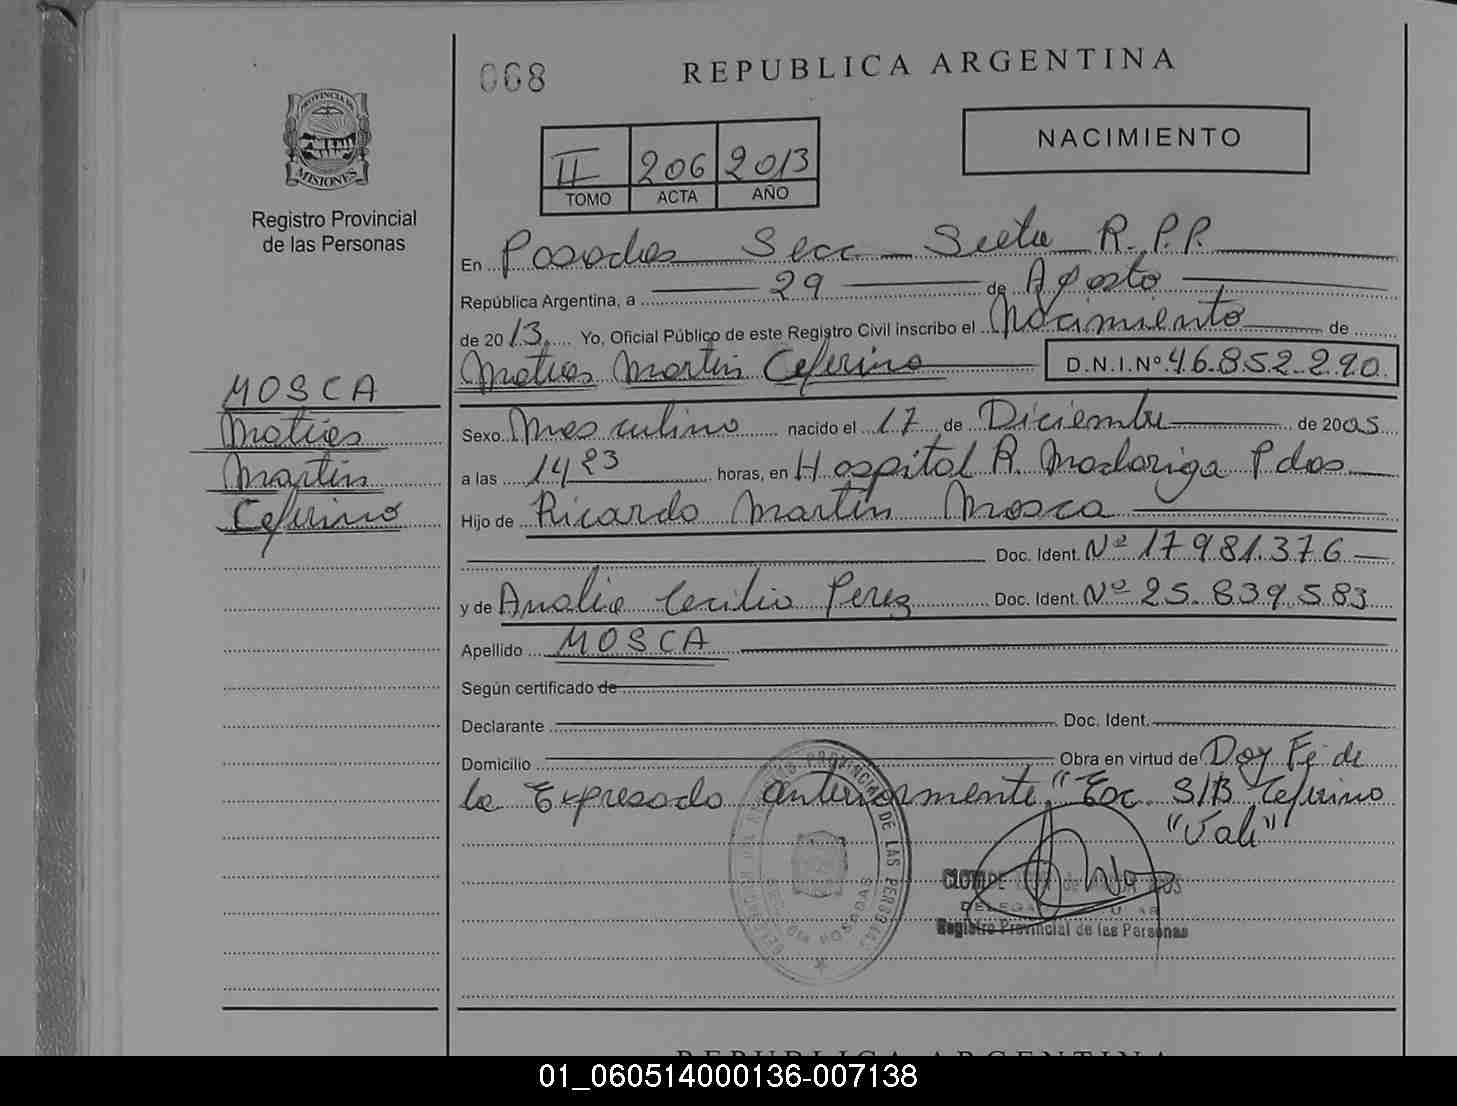 068
REPUBLICA ARGENTINA
PROVINCIA DE
MISIONES
Registro Provincial
de las Personas
NACIMIENTO
II 206 2013
TOMO ACTA AÑO
En Posadas Secc Siete R.P.P.
República Argentina, a 29 de Agosto
de 2013. Yo, Oficial Público de este Registro Civil inscribo el Nacimiento de
Matias Martin Ceferino D.N.I.Nº 46.852.290.
MOSCA
Matias
Martin
Ceferino
Sexo Masculino nacido el 17 de Diciembre de 2005
a las 1423 horas, en Hospital R. Madariaga Pdas
Hijo de Ricardo Martin Mosca
Doc. Ident. Nº 17.981.376
y de Analia Cecilia Perez Doc. Ident. Nº 25.839.583
Apellido MOSCA
Según certificado de
Declarante Doc. Ident.
Domicilio Obra en virtud de Doy Fe de
lo Expresado anteriormente." Enc. S/B Ceferino
"Vale"
PROVINCIAL DE LAS PERSONAS
POSADAS
Registro Provincial de las Personas
REPUBLICA ARGENTINA
01_060514000136-007138